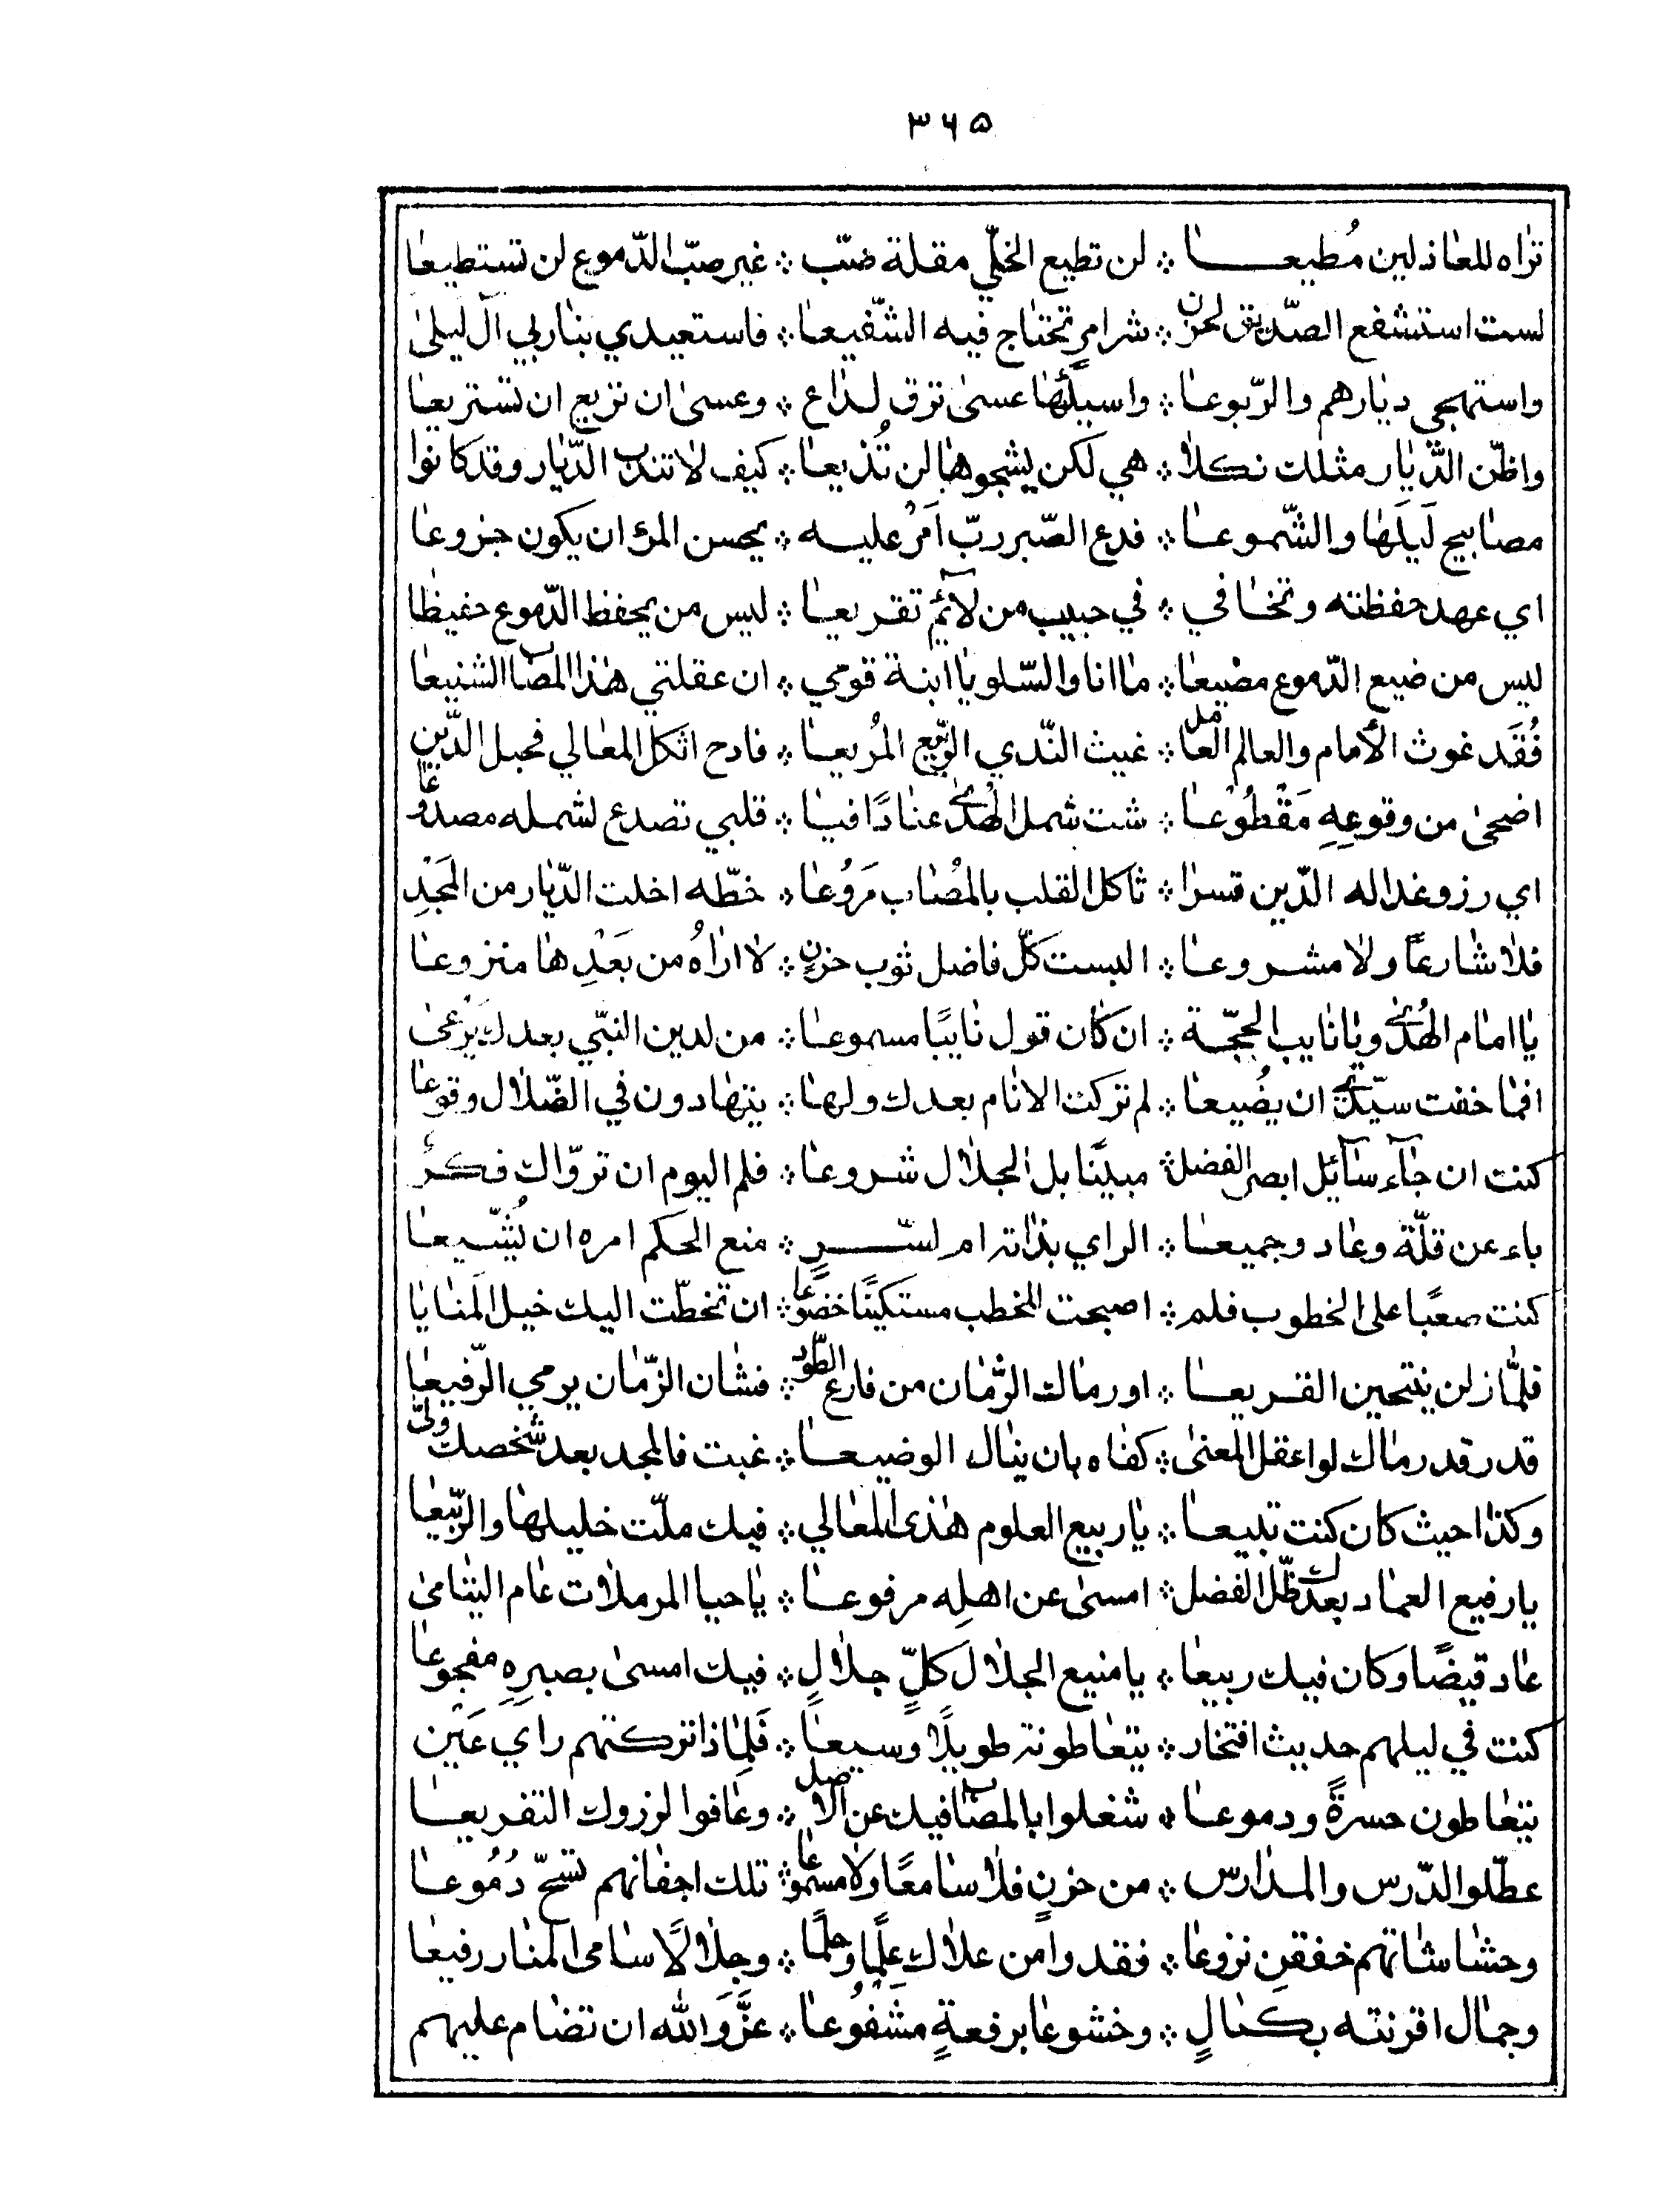 ٣٦٥
تراه للعاذلين مُطيعا ⁘ لن تطيع الخلّي مقلة صبّ ⁘ غير صبّ الدّموع لن تستطيعا
لست استشفع الصّديق لحزن ⁘ شر امرٍ تحتاج فيه الشّفيعا ⁘ فاستعيدي بنا ربي آل ليلى
واستهجي ديارهم والرّبوعا ⁘ واسيلنها عسى ترق لداع ⁘ وعسى ان تريع ان تستريعا
واظنّ الدّيار مثلك ثكلا ⁘ هي لكن يشجوها لن تُذيعا ⁘ كيف لا تندب الدّيار وقد كانوا
مصابيح لَيلَها والشّموعا ⁘ فدع الصّبر ربّ اَمرْ عليه ⁘ يحسن المرؤ ان يكون جزوعا
اي عهد حفظته وتخافي ⁘ في حبيب من لآئمٍ تقريعا ⁘ ليس من يحفظ الدّموع حفيظا
ليس من ضيع الدّموع مضيعا ⁘ ما انا والسّلو يا ابنة قومي ⁘ ان عقلتني هذا المصاب الشنيعا
فُقَد غوث الأمام والعالم العامل ⁘ غيث النّدي الرّبيع المُريعا ⁘ فادح اثكل المعالي فحبل الدّين
اضحى من وقوعِهِ مَقْطُوْعا ⁘ شت شمل الهُدىٰ عنادًا فيا ⁘ قلبي تصدع لشمله مصدوعا
اي رزو غدا له الدّين قسرا ⁘ ثاكل القلب بالمُصاب مَرُوْعا ⁘ خطّه اخلت الدّيار من المَجْدِ
فلا شارعًا ولا مشروعا ⁘ البست كلّ فاضل ثوب حزنٍ ⁘ لا اراهُ من بَعْدِها منزوعا
يا امام الهُدىٰ ويا نايب الحجّة ⁘ ان كان قول نايبًا مسموعا ⁘ من لدين النبّي بعدك يَرْعىٰ
افما خفت سيّدي ان يضُيعا ⁘ لم تركت الانام بعدك ولها ⁘ يتهادون في الضّلال وقوعا
كنت ان جآء سآئل ابصر الفضل ⁘ مبيّنا بل الجلال شروعا ⁘ فلم اليوم ان تروّاك فكرٌ
باء عن قلّة وعاد وجميعا ⁘ الراي بذاته ام لسّرٍ ⁘ منع الحكم امره ان يُشّيعا
كنت صعبًا على الخطوب فلم ⁘ اصبحت للخطب مستكينًا خضوعا ⁘ ان تخطّت اليك خيل المَنايا
فلمّا زلن ينتحين القريعا ⁘ او رماك الزّمان من فارع الطّود ⁘ فشان الزّمان يرمي الرّفيعا
قدر قد رماك لو اعقل المعنىٰ ⁘ كفاه بان ينال الوضيعا ⁘ غبت فالمجد بعد شخصك ولّىٰ
وكذا حيث كان كنت تبيعا ⁘ يا ربيع العلوم هذي المعالي ⁘ فيك ملّت خليلها والرّبيعا
يا رفيع العماد بعدك ظلّ الفضل ⁘ امسىٰ عن اهلِه مرفوعا ⁘ يا حيا المرملات عام اليتامىٰ
عاد قيضًا وكان فيك ربيعا ⁘ يا منيع الجلال كلّ جلالٍ ⁘ فيك امسىٰ بصبرِهِ مفجوعا
كنت في ليلهم حديث افتخار ⁘ يتعاطونه طويلًا وسيعاً ⁘ فَلِماذا تركتهم راي عَيْن
يتعاطون حسرةً ودموعا ⁘ شغلوا بالمصاب فيك عن الاصل ⁘ وعافوا لرزوك التفريعا
عطّلوا الدّرس والمدارس ⁘ من حزنٍ فلا سامعًا ولا مسموعا ⁘ تلك اجفانهم تسّحّ دُمُوعا
وحشاشاتهم خفقن نزوعا ⁘ فقدوا من علاك عِلمًا وحلمًا ⁘ وجلالًا سامي المنار رفيعا
وجمال اقرنته بكمالٍ ⁘ وخشوعا برفعةٍ مشْفُوْعا ⁘ عزَّ والله ان تضام عليهم